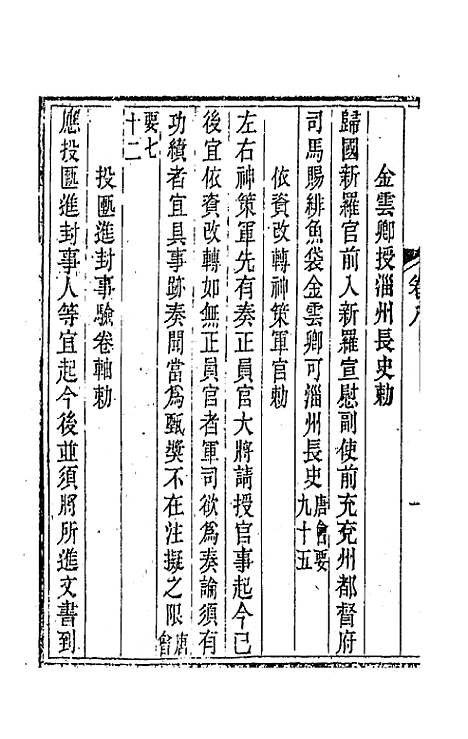 金雲卿授淄州長史勅
歸國新羅官前入新羅宣慰副使前充兗州都督府
司馬賜緋魚袋金雲卿可淄州長史唐會要九十五
依資改轉神策軍官勅
左右神策軍先有奏正員官大將請授官事起今已
後宜依資改轉如無正員官者軍司欲為奏論須有
功績者宜具事跡奏聞當為甄奨不在注擬之限唐會
要七十二
投匭進封事驗卷軸勅
應投匭進封事人等宜起今後並須將所進文書到
卷八
一